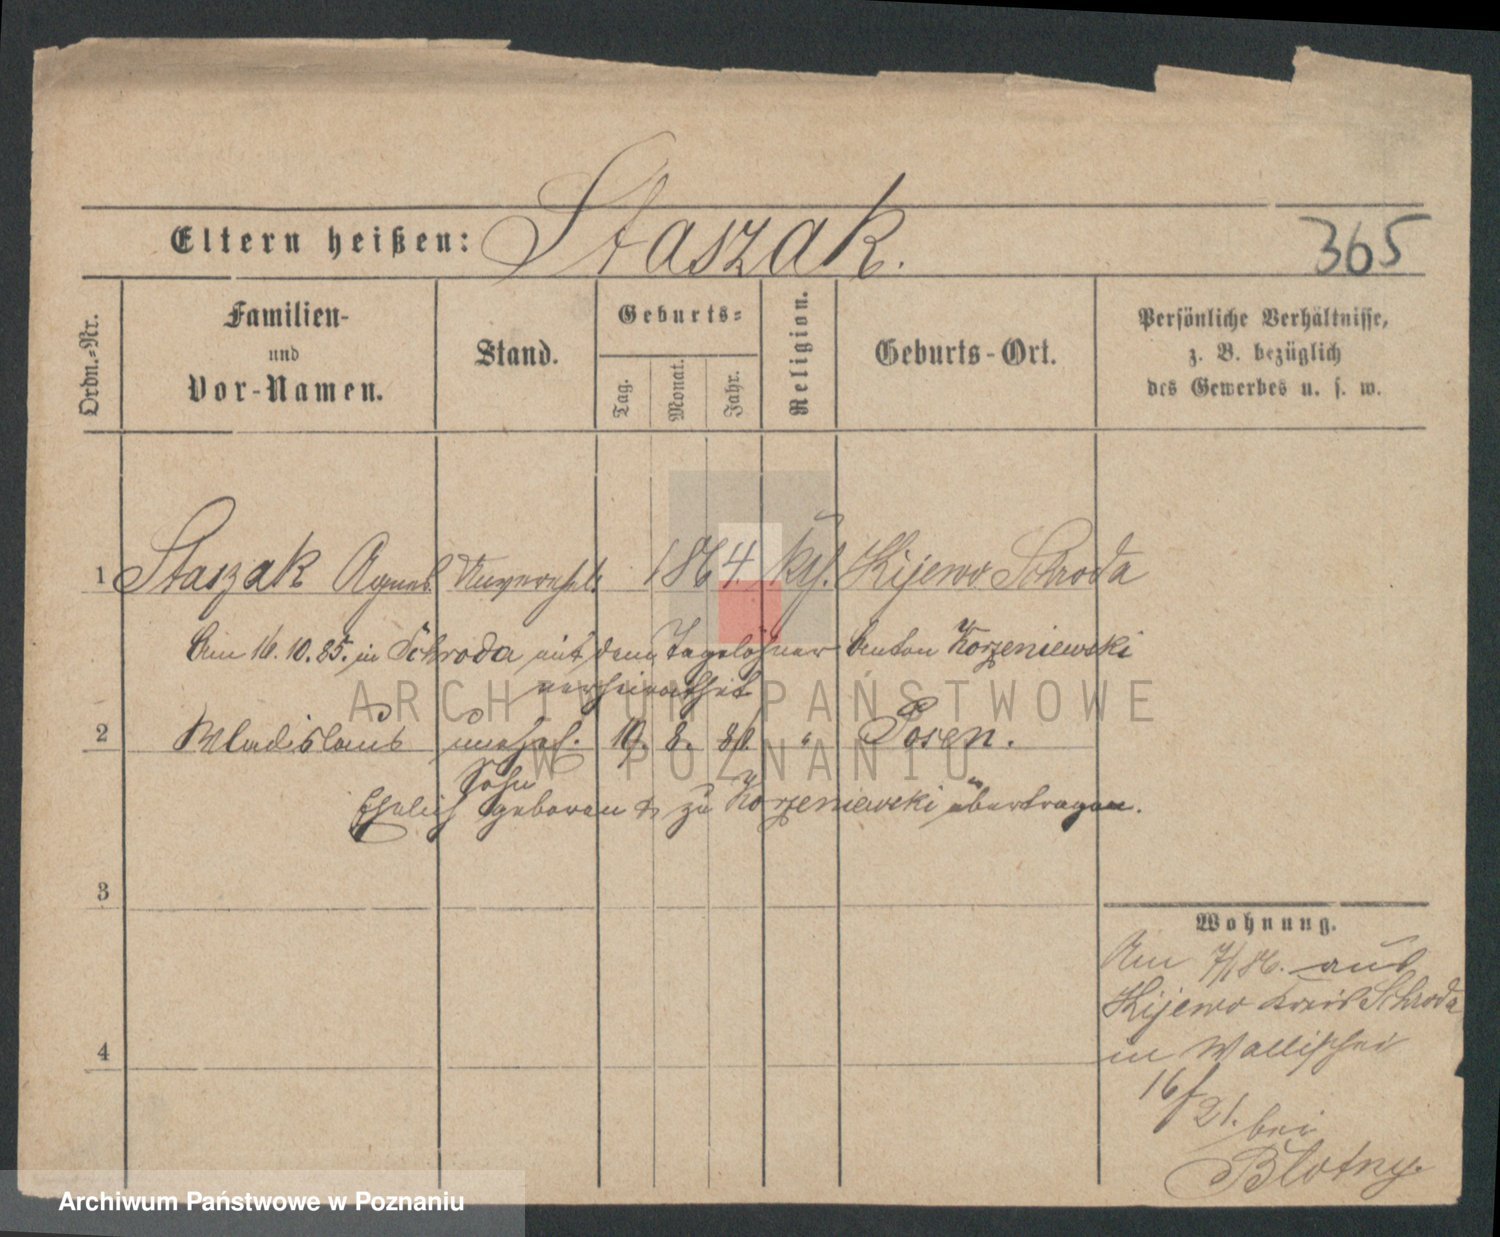 Staszak.
Eltern heißen:
365
Ordn.-Nr.
Familien-
und
Vor-Namen.
Stand.
Geburts-
Tag.
Monat.
Jahr.
Religion.
Geburts-Ort.
Persönliche Verhältnisse,
z. B. bezüglich
des Gewerbes u. s. w.
1 Staszak Agnes Unverehel. 1864. kath. Kijewo Schroda
Am 16.10.85. in Schroda mit dem Tagelöhner Anton Korzeniewski
verheirathet
2 Wladislaus unehel. 10. 8. " Posen.
Sohn
Ehelich geboren & zu Korzeniewski übertragen.
3
4
Wohnung.
Am 7/1 86. aus
Kijewo Kreis Schroda
in Wallischei
16/21. bei
Blotny.
ARCHIWUM PAŃSTWOWE
W POZNANIU
Archiwum Państwowe w Poznaniu